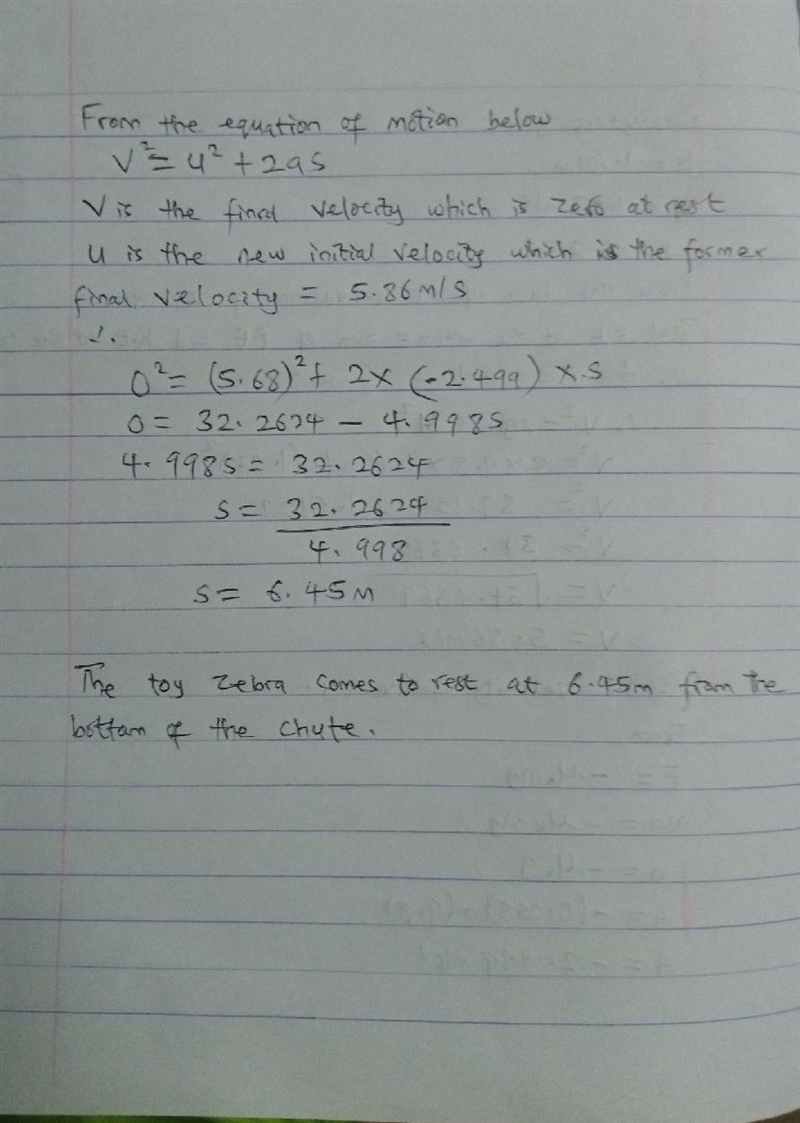 From the equation of motion below
V² = u² + 2as
V is the final velocity which is zero at rest
u is the new initial velocity which is the former
final velocity = 5.86m/s
∴
0² = (5.68)² + 2x (-2.499) x s
0 = 32.2624 - 4.998s
4.998s = 32.2624
s = 32.2624
4.998
s = 6.45m
The toy zebra comes to rest at 6.45m from the
bottom of the chute.